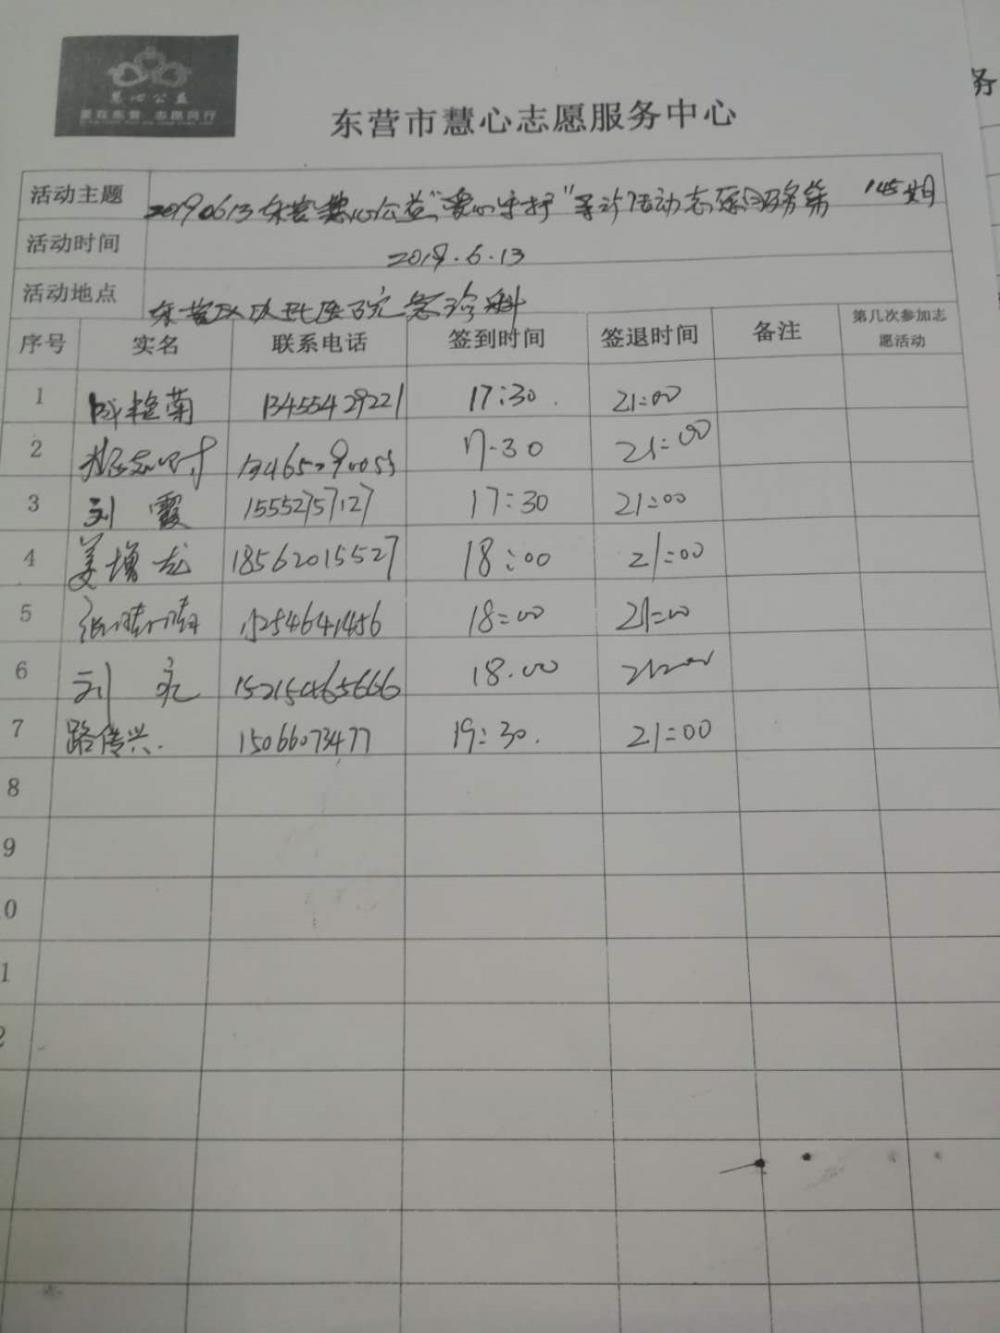 慧心公益
爱在东营 志愿同行
东营市慧心志愿服务中心
务
活动主题 20190613东营慧心公益"爱心守护"导诊活动志愿服务第 145期
活动时间 2019.6.13
活动地点 东营 医院急诊科
序号 实名 联系电话 签到时间 签退时间 备注 第几次参加志愿活动
1 菊 13455429221 17:30. 21:00
2 17:30 21:00
3 刘霞 15552757127 17:30 21:00
4 姜增龙 18562015527 18:00 21:00
5 张晴晴 15254641456 18:00 21:00
6 刘亮 15215465666 18:00
7 路传兴. 15066073477 19:30. 21:00
8
9
0
1
2